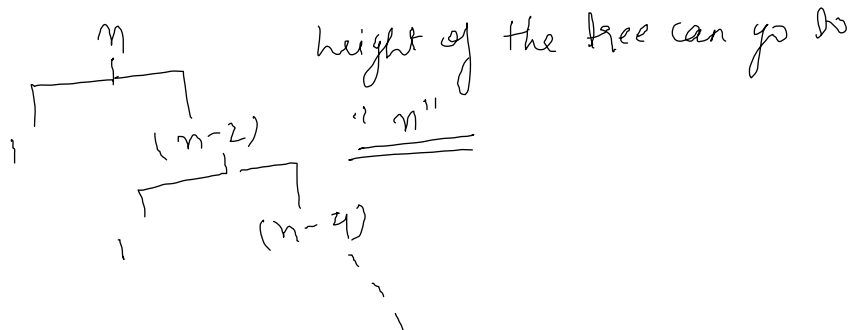 n
height of the tree can go to
1
(n-2)
"n"
1
(n-4)